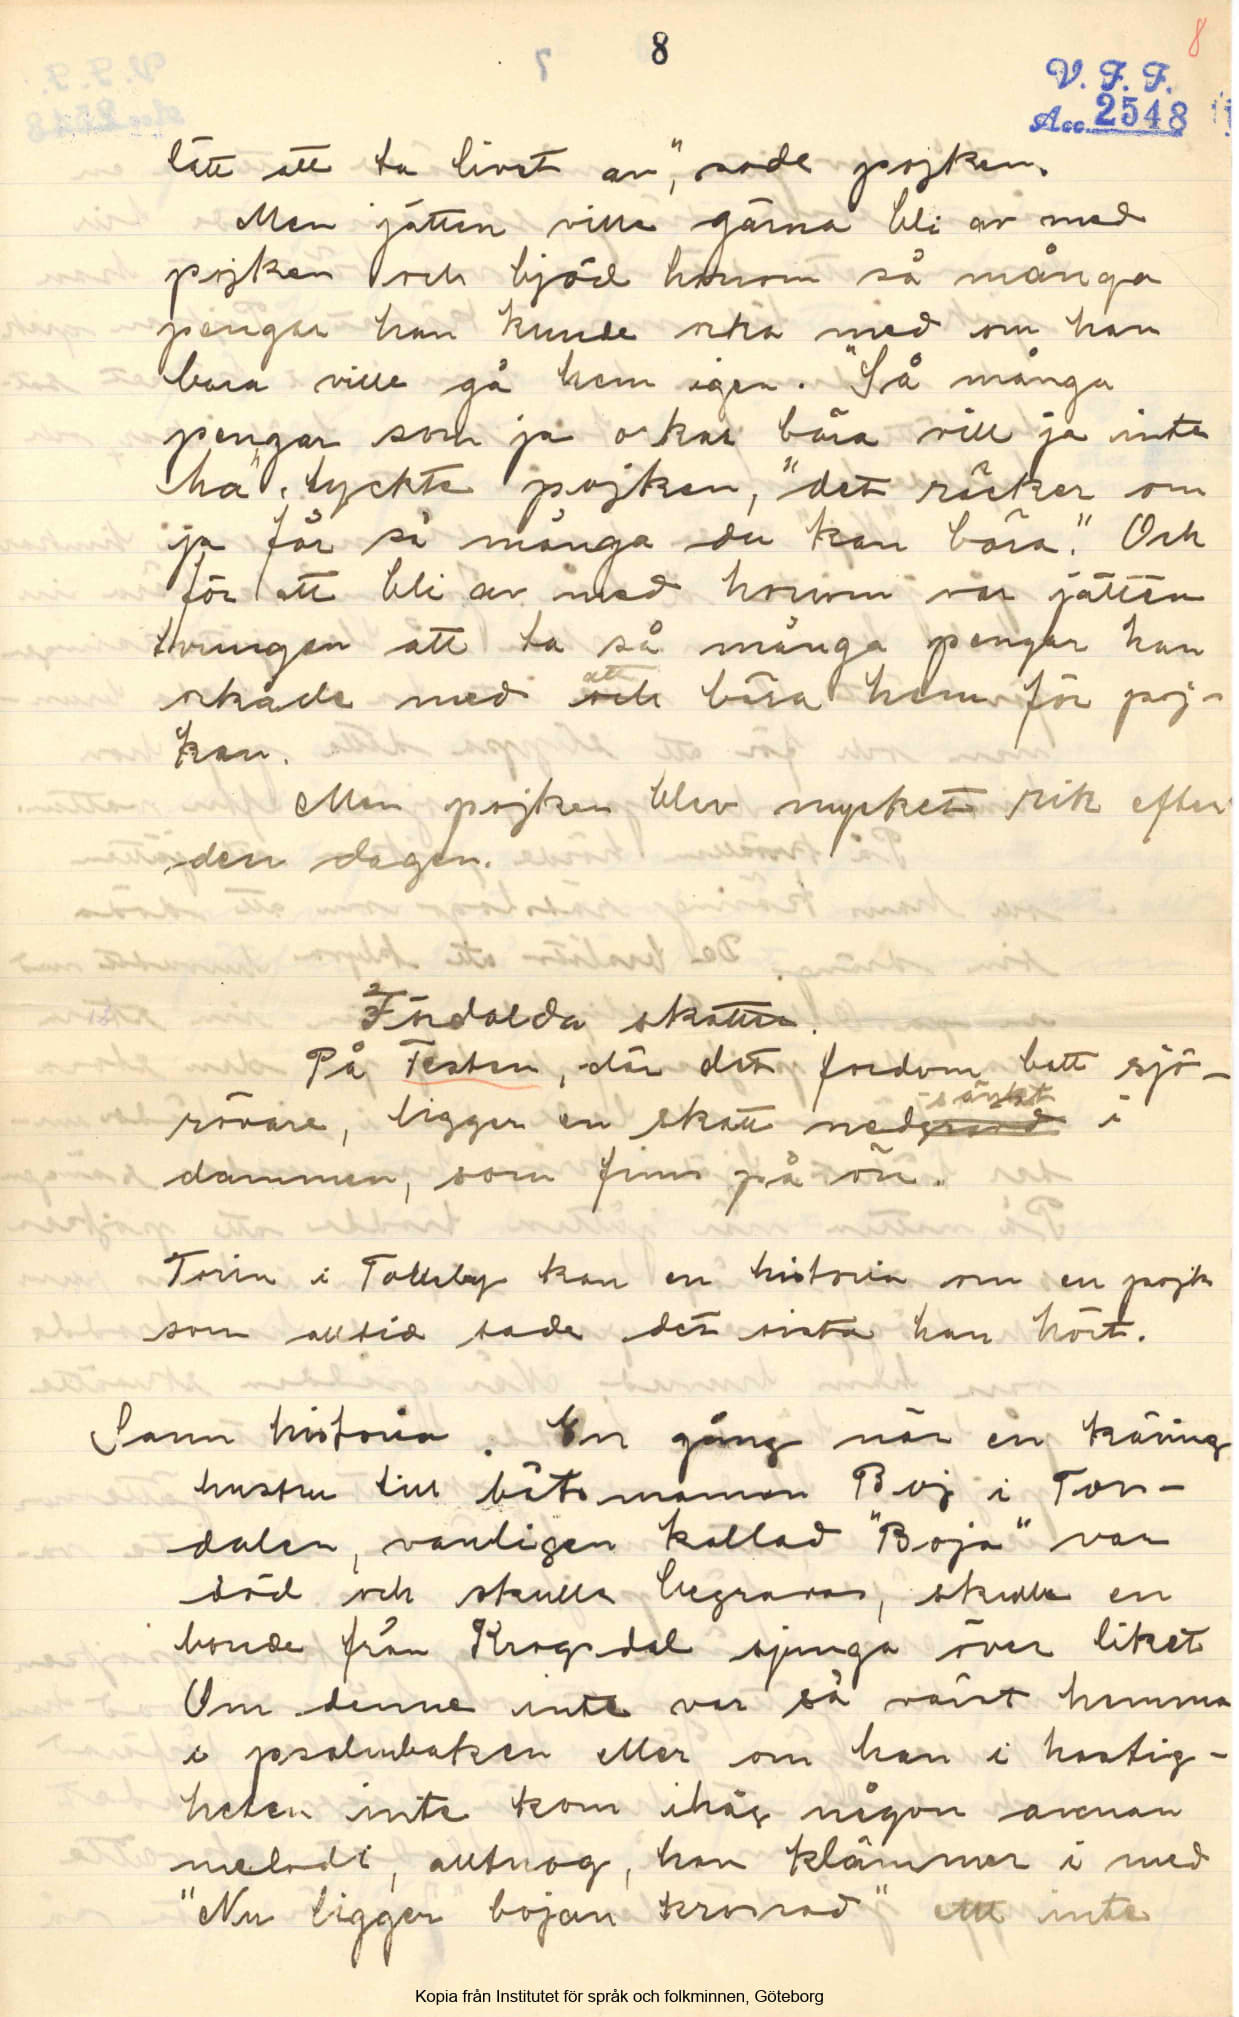 8
8
V. F. F.
Acc. 2548
lätt att ta livet av", sade pojken.
Men jätten ville gärna bli av med
pojken och bjöd honom så många
pengar han kunde orka med om han
bara ville gå hem igen. "Så många
pengar som ja orkar bära vill ja inte
ha", tyckte pojken, "det räcker om
ja får så många du kan bära." Och
för att bli av med honom var jätten
tvungen att ta så många pengar han
orkade med och att bära hem för poj-
ken.
Men pojken blev mycket rik efter
den dagen.
Fördolda skatter.
På Testen, där det fordom bott sjö-
rövare, ligger en skatt nedgrävd -sänkt i
dammen, som finns på ön.
Torin i Tolleby kan en historia om en pojk
som alltid sade det sista han hört.
Sann historia. En gång när en käring
hustru till båtsmannen Boj i Ton-
dalen, vanligen kallad "Boja" var
död och skulle begravas, skulle en
bonde från Krogsdal sjunga över liket
Om denne inte var så värst hemma
i psalmboken eller om han i hastig-
heten inte kom ihåg någon annan
melodi, alltnog, han klämmer i med
"Nu ligger bojan krossad" ett inte
Kopia från Institutet för språk och folkminnen, Göteborg